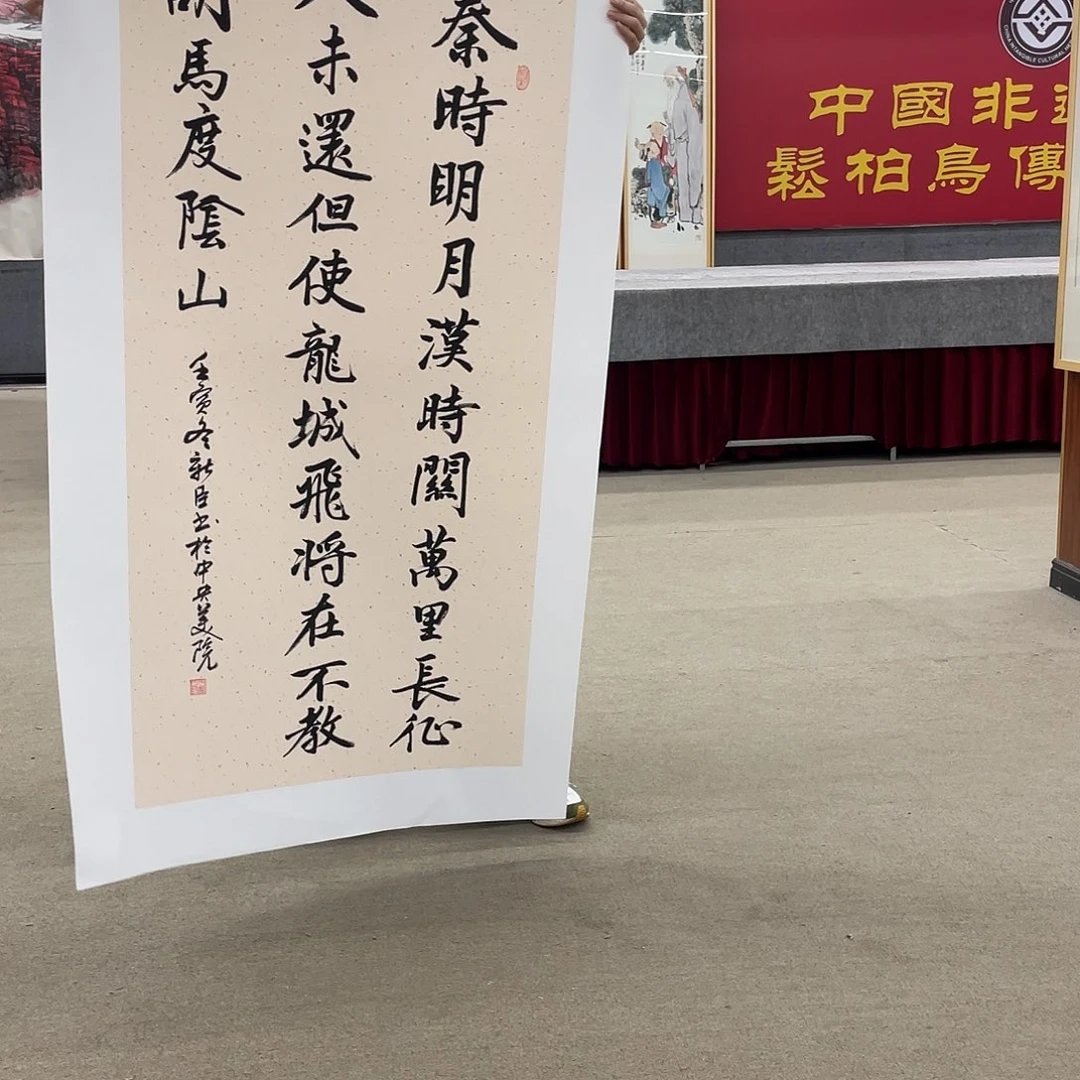 秦時明月漢時關萬里長征
人未還但使龍城飛將在不教
胡馬度陰山
壬寅冬新臣书於中央美院
中國非遗
鬆柏鳥傳